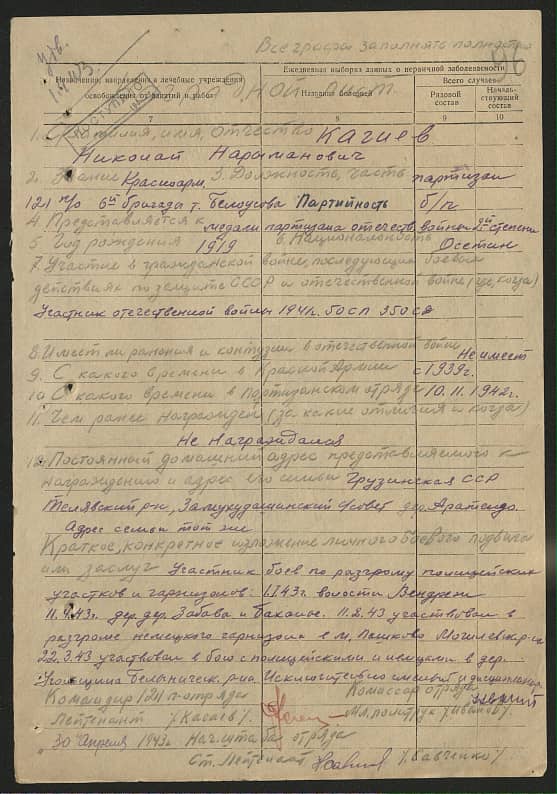 Все графы заполнять полностью
Утв.
56
Ежедневная выборка данных о первичной заболеваемости
Назначение, направления в лечебные учреждения
освобождения от занятий и работ
Название болезней
Всего случаев
Рядовой состав
Началь-ствующий состав
7 8 9 10
Наградной лист.
1. Фамилия, имя, отчество Качиев
Николай Нарыманович
2. Звание Красноарм. 3. Должность, часть партизан
121 п/о 6й бригады т. Белоусова Партийность б/п
4. Представляется к медали партизана отечеств. войны II й степени
5. Год рождения 1919 6. Национальность Осетин
7. Участие в гражданской войне, последующих боевых
действиях по защите СССР и отечественной войне (где, когда)
Участник отечественной войны 1941г. 60СП 350СД
8. Имеет ли ранения и контузии в отечественной войне
Не имеет
9. С какого времени в Красной Армии с 1939г.
10. С какого времени в Партизанском отряде 10.11.1942г.
11. Чем ранее награжден (за какие отличия и когда)
Не награждался
12. Постоянный домашний адрес представляемого к
награждению и адрес его семьи Грузинская ССР
Телявский р-н, с/совет дер.
Адрес семьи тот же
Краткое, конкретное изложение личного боевого подвига
или заслуг Участник боев по разгрому полицейских
участков и гарнизонов: 1.I.43г. волости
11.9.43г. дер. дер. Забава и 11.2.43 участвовал в
разгроме немецкого гарнизона в м. Пашково Могилевск. р-на
22.3.43 участвовал в бою с полицейскими и немцами в дер.
Белыническ. р-на. Исключительно смелый и дисциплинир.
Командир 121 п-отряда Комиссар отряда
Лейтенант /Касаев/ Мл. политрук /Иванов/
"30" Апреля 1943г. Нач. штаба отряда
Ст. Лейтенант /Савченко/